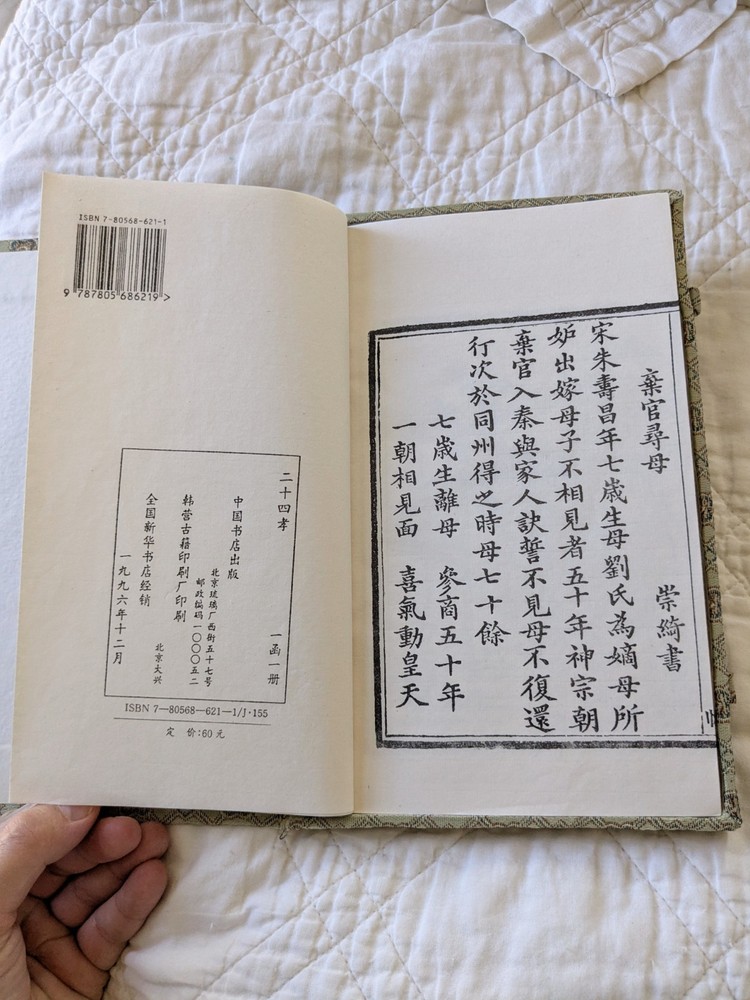 ISBN 7-80568-621-1
9 787805 686219 >
二十四孝 一函一册
中国书店出版
北京琉璃厂西街五十七号
邮政编码一〇〇〇五二
韩营古籍印刷厂印刷
北京大兴
全国新华书店经销
一九九六年十二月
ISBN 7—80568—621—1/J·155
定 价:60元
棄官尋母 崇綺書
宋朱壽昌年七歲生母劉氏為嫡母所
妒出嫁母子不相見者五十年神宗朝
棄官入秦與家人訣誓不見母不復還
行次於同州得之時母七十餘
七歲生離母 參商五十年
一朝相見面 喜氣動皇天